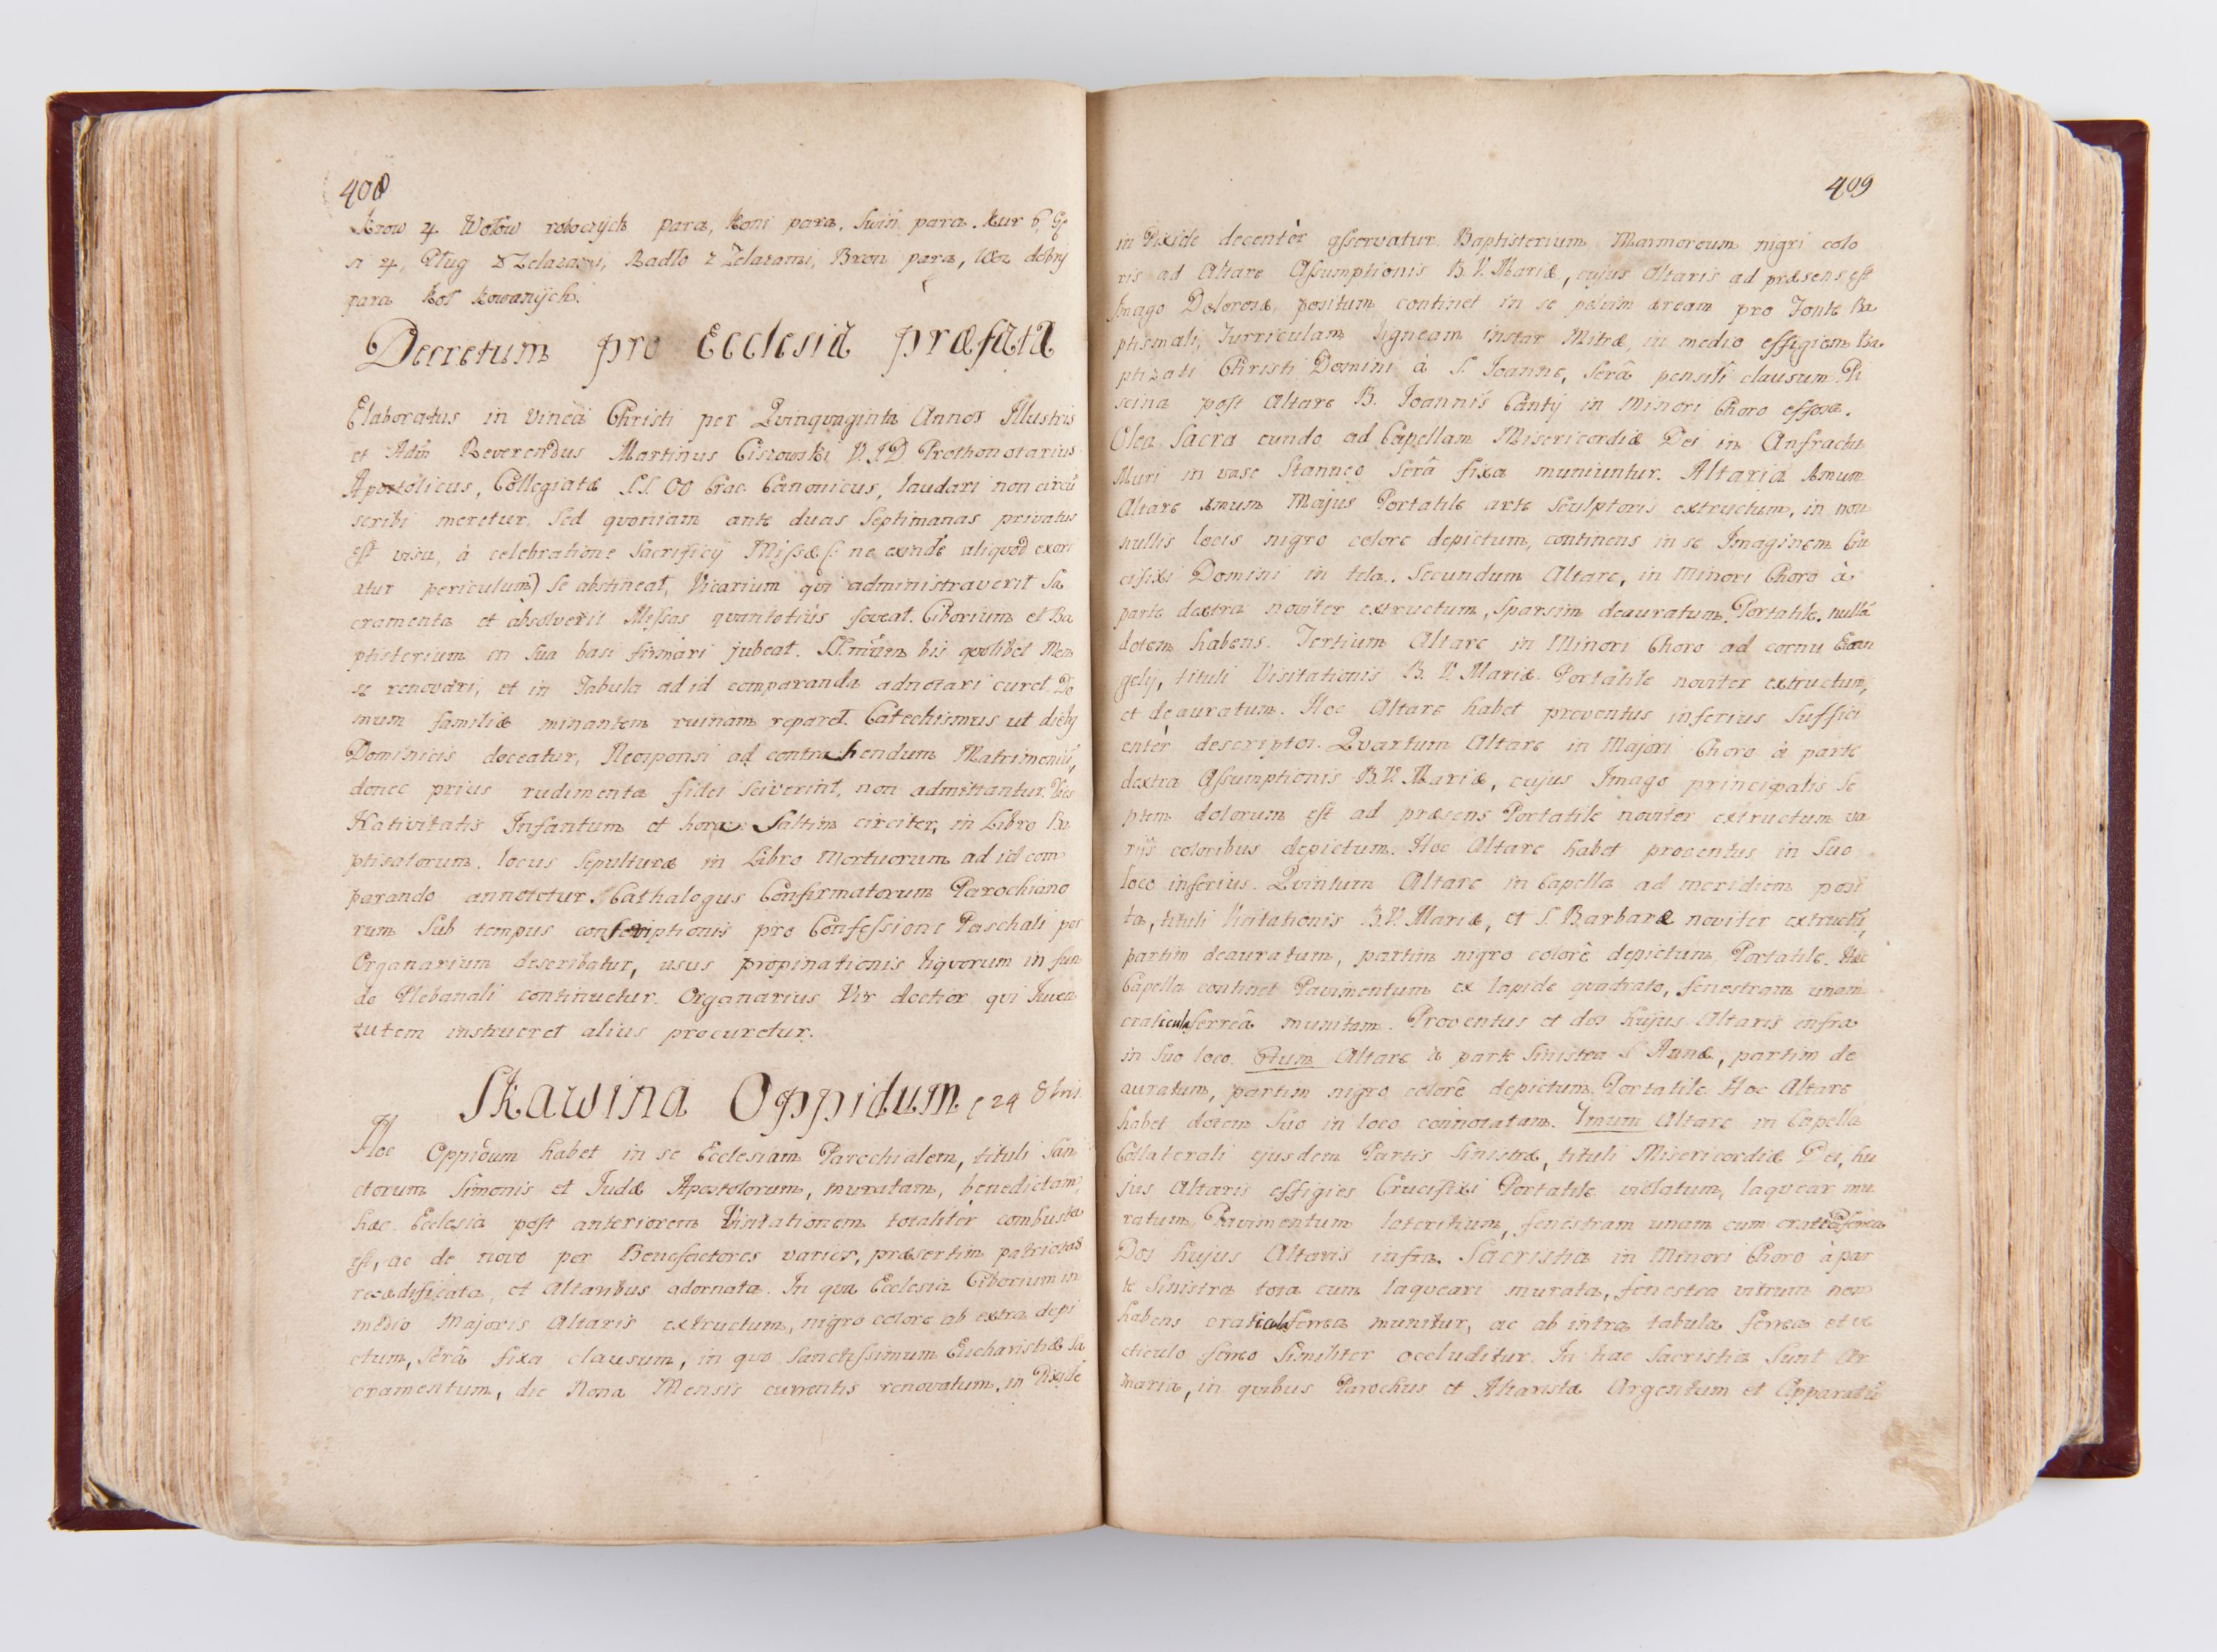 408
Krow 4 Wołow roboczych para, Koni para, Swiń para. Kur 6, Gę
si 4, Pług z Zelazami, Radło z Zelazami, Bron para, Woz dobry
para Koł kowanych.
Decretum pro Ecclesia præfata
Elaboratus in vinea Christi per Quinquaginta Annos Illustris
et Adm Reverendus Martinus Ciszowski V.I.D. Prothonotarius
Apostolicus, Collegiatæ SS. OO Crac. Canonicus, laudari non circū
scribi meretur. Sed quoniam ante duas septimanas privatus
est visu, à celebratione Sacrificij Missæ (: ne exinde aliquod exori
atur periculum) se abstineat, Vicarium qui administraverit Sa
cramenta et absolverit Missas quantotius foveat. Ciborium et Ba
ptisterium in sua basi firmari jubeat. SS.mum bis quolibet Men
se renovari, et in Tabula ad id comparanda adnotari curet. Do
mum familiæ minantem ruinam reparet. Catechismus ut diebg
Dominicis doceatur, Neosponsi ad contrahendum Matrimoniū,
donec prius rudimenta fidei sciverint, non admittantur. Dies
Nativitatis Infantum et horæ saltim circiter, in Libro Ba
ptisatorum. locus sepulturæ in Libro Mortuorum ad id com
parando annotetur. Cathalogus Confirmatorum Parochiano
rum sub tempus conscriptionis pro Confessione Paschali per
Organarium describatur, usus propinationis liquorum in fun
do Plebanali continuetur. Organarius Vir doctior qui Juven
tutem instrueret alius procuretur.
Skawina Oppidum, 24 8bris
Hoc Oppidum habet in se Ecclesiam Parochialem, tituli San
ctorum Simonis et Judæ Apostolorum, muratam, benedictam,
hæc Ecclesia post anteriorem Visitationem totaliter combusta
est, ac de novo per Benefactores varios, præsertim patriotas
reædificata, et Altaribus adornata. In qua Ecclesia Ciborium in
medio Majoris Altaris extructum, nigro colore ab extra depi
ctum, serâ fixa clausum, in quo Sanctissimum Eucharistiæ Sa
cramentum, die Nona Mensis currentis renovatum, in Pixide
409
in Pixide decentèr asservatur. Baptisterium Marmoreum nigri colo
ris ad Altare Assumptionis B.V. Mariæ, cujus Altaris ad præsens est
Imago Dolorosæ, positum continet in se pelvim æream pro Fonte Ba
ptismali, Turriculam ligneam instar Mitræ, in medio effigiem Ba
ptizati Christi Domini à S. Joanne, serâ pensili clausum. Pi
scina post Altare B. Joannis Cantij in Minori Choro effossa.
Olea Sacra eundo ad Capellam Misericordiæ Dei in Anfractu
Muri in vase stanneo serâ fixa muniuntur. Altaria 1mum
Altare 1mum Majus Portatile arte sculptoris extructum, in non
nullis locis nigro colore depictum, continens in se Imaginem Cru
cifixi Domini in tela. Secundum Altare, in Minori Choro à
parte dextra noviter extructum, sparsim deauratum. Portatile. nullā
dotem habens. Tertium Altare in Minori Choro ad cornu Evan
gelij, tituli Visitationis B.V. Mariæ. Portatile noviter extructum,
et deauratum. Hoc Altare habet proventus inferius suffici
entèr descriptos. Quartum Altare in Majori Choro à parte
dextra Assumptionis B.V. Mariæ, cujus Imago principalis Se
ptem dolorum est ad præsens Portatile noviter extructum va
rijs coloribus depictum. Hoc Altare habet proventus in suo
loco inferius. Quintum Altare in Capella ad meridiem posi
ta, tituli Visitationis B.V. Mariæ, et S. Barbaræ noviter extructū,
partim deauratum, partim nigro colorê depictum Portatile. Hæc
Capella continet Pavimentum ex lapide quadrato, fenestram unam
craticula ferreâ munitam. Proventus et dos hujus Altaris infra
in suo loco. 6tum Altare à parte sinistra S. Annæ, partim de
auratum, partim nigro colorê depictum Portatile. Hoc Altare
habet dotem suo in loco connotatam. 7mum Altare in Capella
Collaterali ejusdem Partis sinistræ, tituli Misericordiæ Dei, hu
jus Altaris effigies Crucifixi Portatile violatum, laquear mu
ratum, Pavimentum lateritium, fenestram unam cum crate ferrea
Dos hujus Altaris infra. Sacristia in Minori Choro à par
te sinistra tota cum laqueari murata, fenestra vitrum non
habens craticula ferrea munitur, ac ab intra tabula ferrea et ve
cticulo ferreo similiter occluditur. In hac Sacristia sunt Ar
maria, in quibus Parochus et Altaristæ Argentum et Apparatū